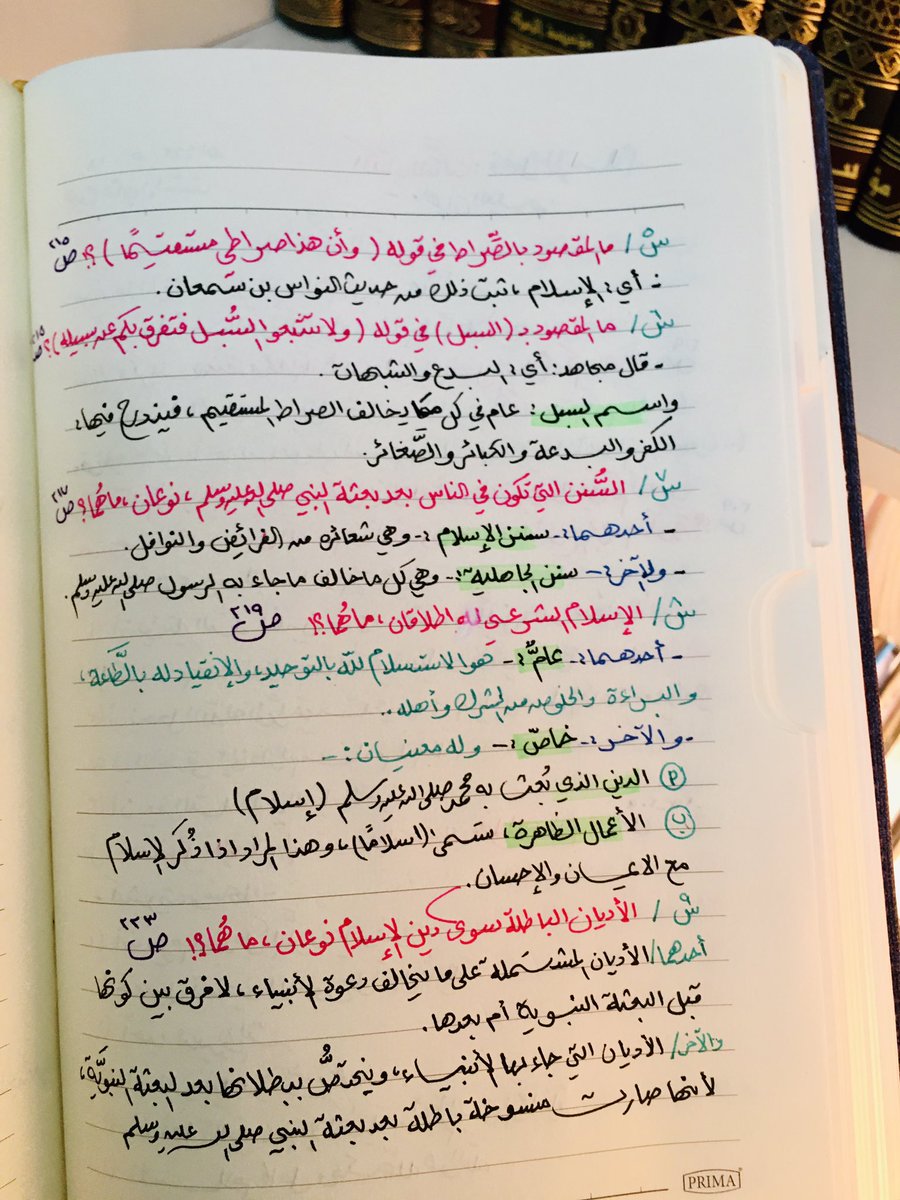 س/ ما المقصود بالصِّراط في قوله ( وأن هذا صراطي مستقيمًا ) ؟؟ ص٢١٥
- أي: الإسلام، ثبت ذلك من حديث النواس بن سَمعان.
س/ ما المقصود بـ (السبل) في قوله ( ولا تتبعوا السُّبل فتفرق بكم عن سبيله ) ؟ ص٢١٥
- قال مجاهد: أي: البدع والشبهات.
واسم السبل: عام في كل ما يخالف الصراط المستقيم، فيندرج فيها:
الكفر والبدعة والكبائر والصَّغائر.
س/ السُّنن التي تكون في الناس بعد بعثة النبي صلى الله عليه وسلم، نوعان، ما هُما؟ ص٢١٧
- أحدهما:- سنن الإسلام:- وهي شعائره من الفرائض والنوافل.
- والآخر:- سنن الجاهلية:- وهي كل ما خالف ما جاء به الرسول صلى الله عليه وسلم.
س/ الإسلام الشرعي له اطلاقان، ما هُما؟! ص٢١٩
- أحدهما:- عامٌّ:- هو الاستسلام للّه بالتوحيد، والإنقياد له بالطَّاعة،
والبراءة والخلوص من الشرك وأهله..
- والآخر:- خاصّ:- وله معنيان:-
(أ) الدين الذي بُعث به محمد صلى الله عليه وسلم (إسلام)
(ب) الأعمال الظاهرة، ستسمى (اسلامًا)، وهذا المراد اذا ذُكر الإسلام
مع الايمان والإحسان.
س/ الأديان الباطلة سوى دين الإسلام نوعان، ما هُما؟! ص٢٢٣
أحدهما/ الأديان المشتملة على ما يخالف دعوة الأنبياء، لا فرق بين كونها
قبل البعثة النبوية أم بعدها.
والآخر/ الأديان التي جاء بها الأنبياء، ويختصُّ ببطلانها بعد البعثة النبويَّة،
لأنها صارت منسوخة باطلة بعد بعثة النبي صلى الله عليه وسلم
PRIMA